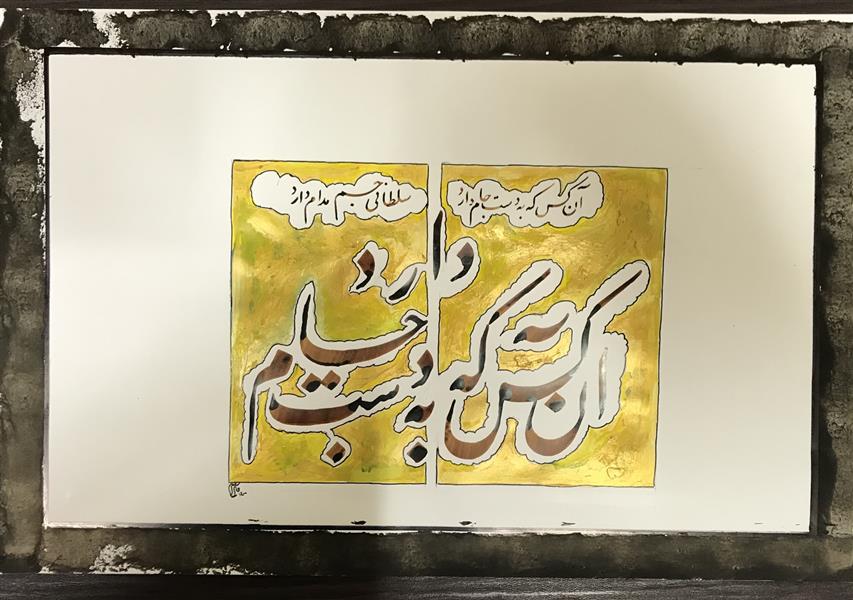 آن کس که به دست جام دارد
سلطانی جم مدام دارد
آن کس که به دست جام دارد